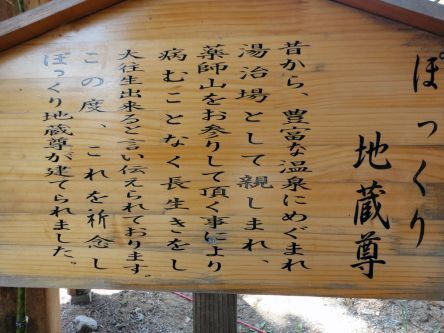 ぽっくり
地蔵尊
昔から、豊富な温泉にめぐまれ
湯治場として親しまれ、
薬師山をお参りして頂く事により
病むことなく長生きをし
大往生出来ると言い伝えられております。
この度、これを祈念し
ぽっくり地蔵尊が建てられました。